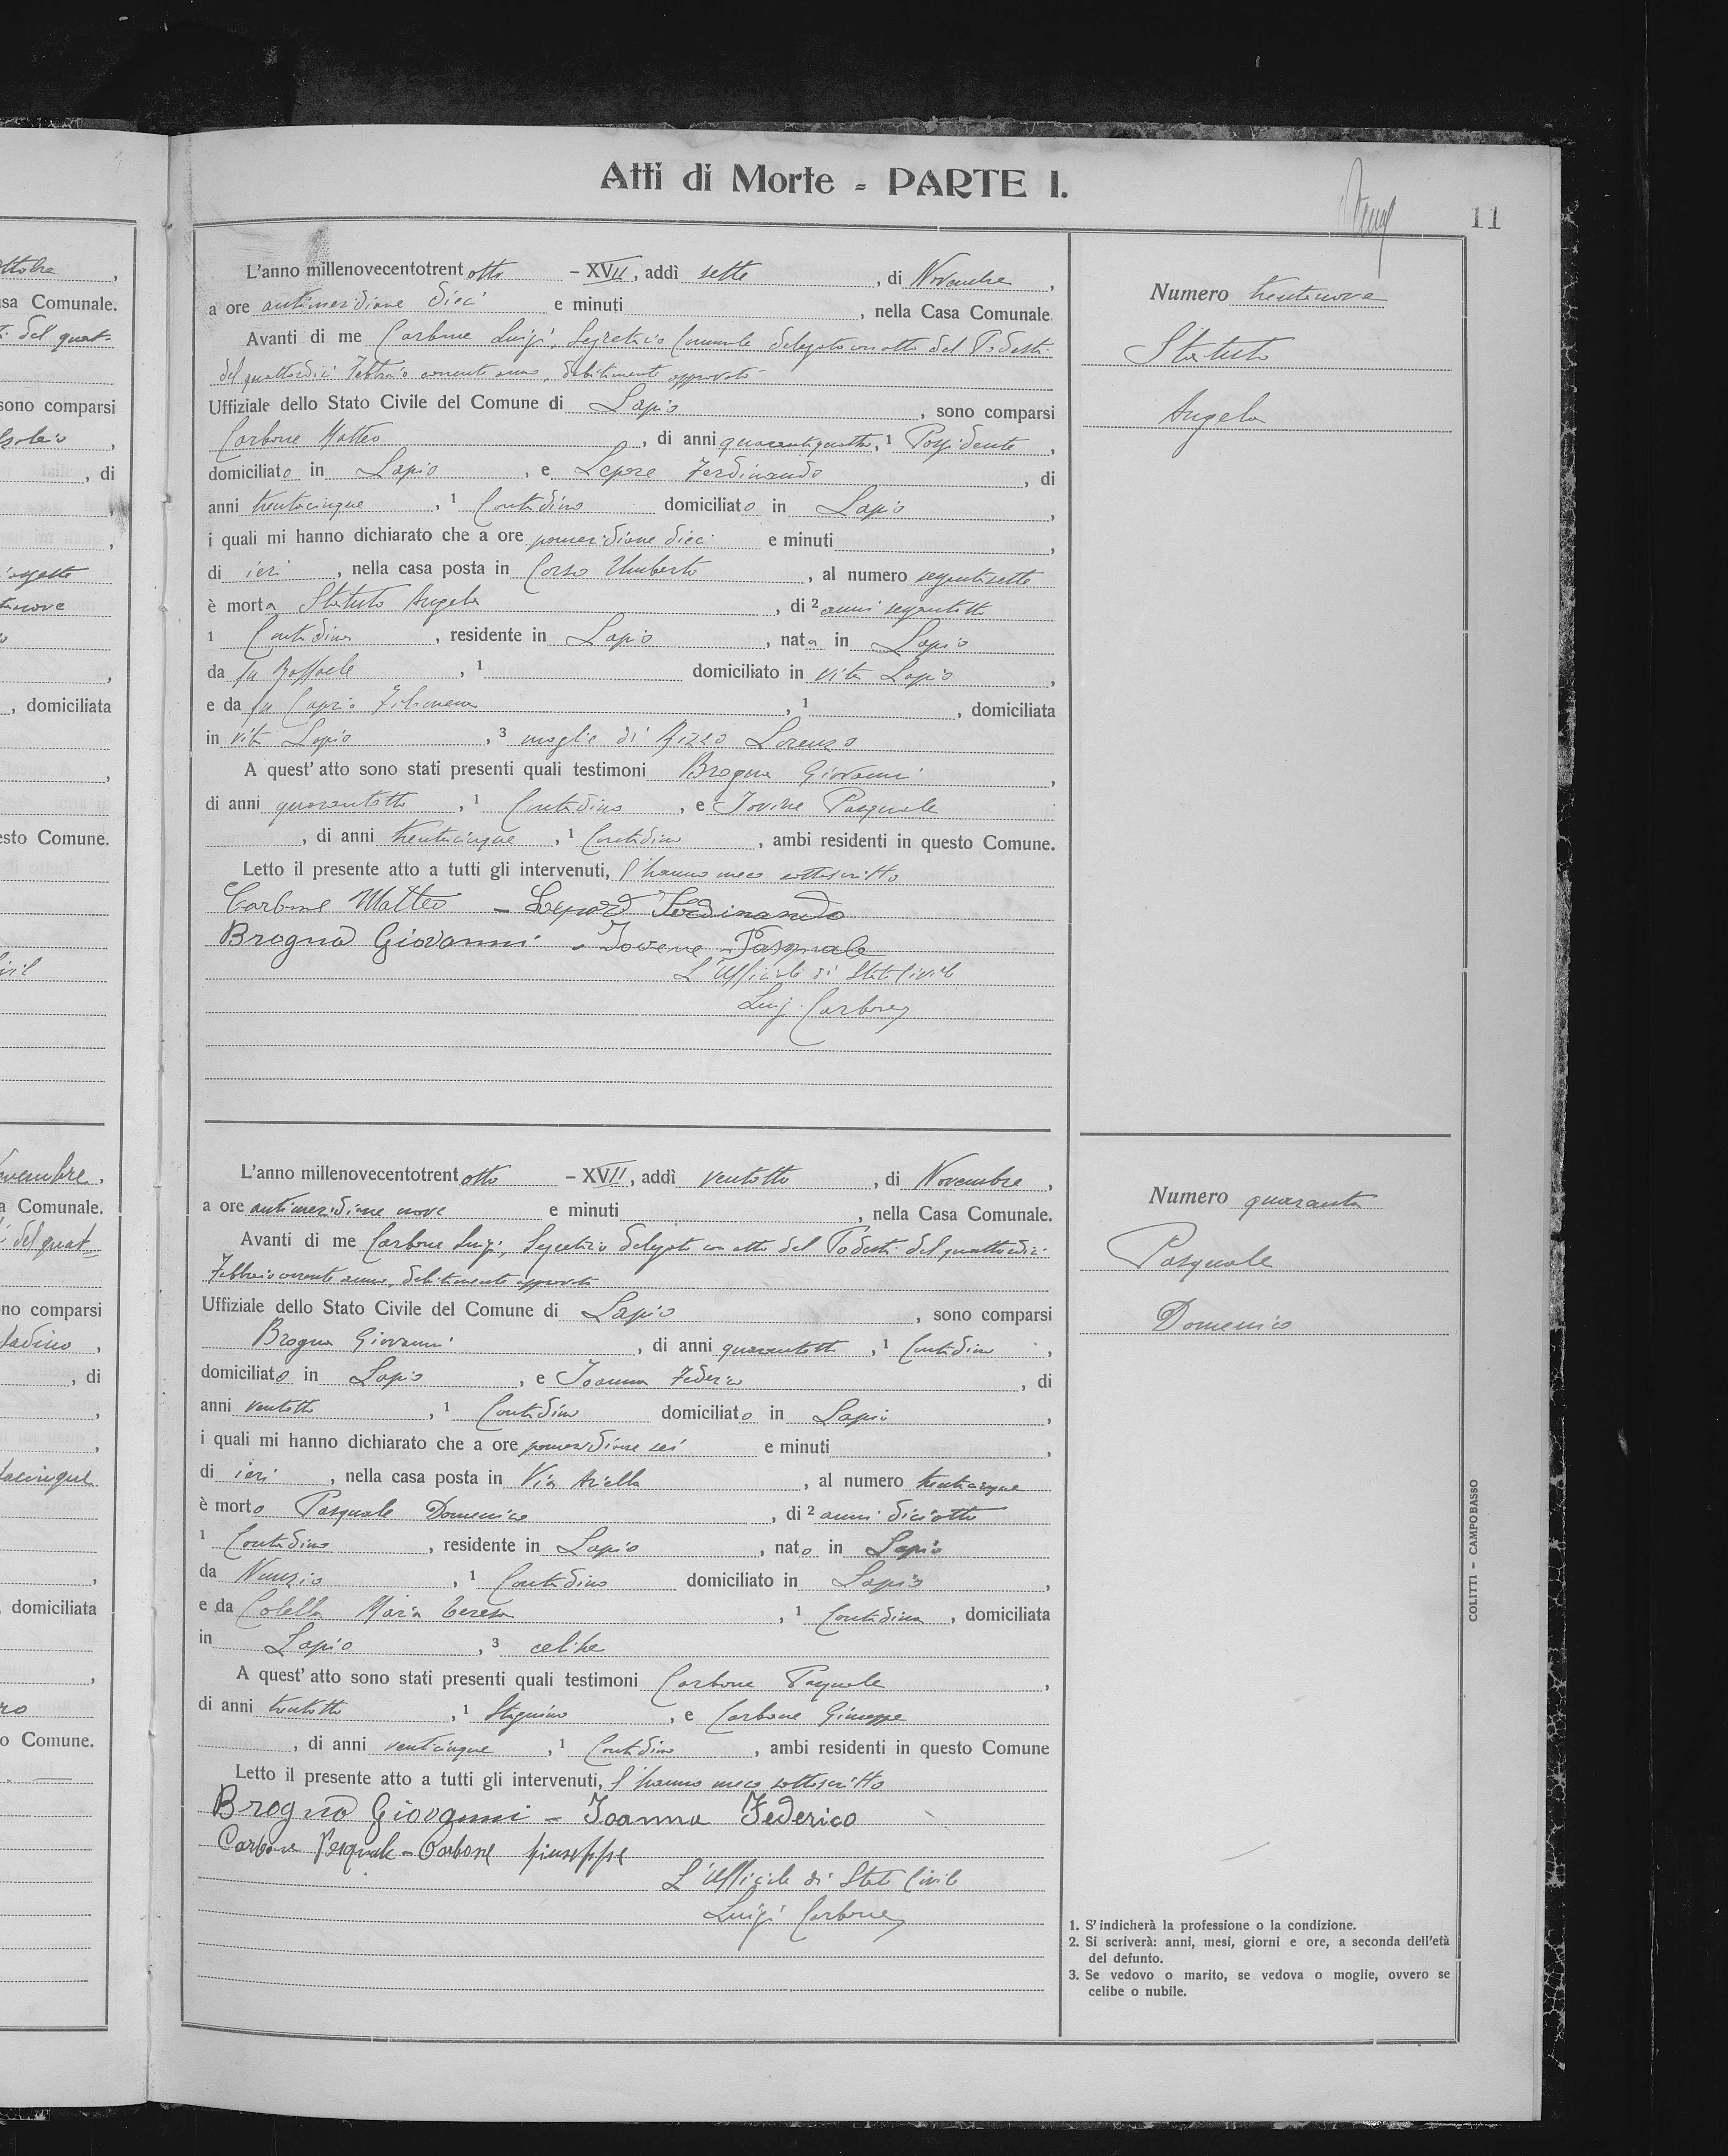 Atti di Morte - PARTE I.
11
L'anno millenovecentotrent otto - XVII, addì sette, di Novembre,
a ore antimeridiane dieci e minuti , nella Casa Comunale.
Avanti di me Carbone Luigi, Segretario Comunale delegato con atto del Podestà
del quattordici Febbraio corrente anno, debitamente approvato
Uffiziale dello Stato Civile del Comune di Lapio, sono comparsi
Carbone Matteo, di anni quarantaquattro, 1 Possidente,
domiciliato in Lapio, e Lepore Ferdinando, di
anni trentacinque, 1 Contadino domiciliato in Lapio,
i quali mi hanno dichiarato che a ore pomeridiane dieci e minuti ,
di ieri, nella casa posta in Corso Umberto, al numero
è morta Statuto Angela, di 2 anni
1 Contadina, residente in Lapio, nata in Lapio
da fu Raffaele, 1 domiciliato in vita Lapio,
e da fu Caprio Filomena, 1 , domiciliata
in vita Lapio, 3 moglie di Rizzo Lorenzo
A quest'atto sono stati presenti quali testimoni Brogna Giovanni,
di anni quarantotto, 1 Contadino, e Iovine Pasquale
, di anni trentacinque, 1 Contadino, ambi residenti in questo Comune.
Letto il presente atto a tutti gli intervenuti, l'hanno meco sottoscritto
Carbone Matteo - Ferdinando
Brogna Giovanni - Iovene Pasquale
L'Ufficiale di Stato Civile
Luigi Carbone
Numero trentanove
Statuto
Angela
L'anno millenovecentotrent otto - XVII, addì ventotto, di Novembre,
a ore antimeridiane nove e minuti , nella Casa Comunale.
Avanti di me Carbone Luigi, Segretario delegato con atto del Podestà del quattordici
Febbraio corrente anno, debitamente approvato
Uffiziale dello Stato Civile del Comune di Lapio, sono comparsi
Brogna Giovanni, di anni quarantotto, 1 Contadino,
domiciliato in Lapio, e Ioanna Federico, di
anni ventotto, 1 Contadino domiciliato in Lapio,
i quali mi hanno dichiarato che a ore pomeridiane sei e minuti ,
di ieri, nella casa posta in Via Ariella, al numero trentacinque
è morto Pasquale Domenico, di 2 anni diciotto
1 Contadino, residente in Lapio, nato in Lapio
da Nunzio, 1 Contadino domiciliato in Lapio,
e da Colella Maria Teresa, 1 Contadina, domiciliata
in Lapio, 3 celibe
A quest'atto sono stati presenti quali testimoni Carbone Pasquale,
di anni trentotto, 1 Stagnino, e Carbone Giuseppe
, di anni venticinque, 1 Contadino, ambi residenti in questo Comune
Letto il presente atto a tutti gli intervenuti, l'hanno meco sottoscritto
Brogna Giovanni - Ioanna Federico
Carbone Pasquale - Carbone Giuseppe
L'Ufficiale di Stato Civile
Luigi Carbone
Numero quaranta
Pasquale
Domenico
1. S'indicherà la professione o la condizione.
2. Si scriverà: anni, mesi, giorni e ore, a seconda dell'età
del defunto.
3. Se vedovo o marito, se vedova o moglie, ovvero se
celibe o nubile.
COLITTI - CAMPOBASSO